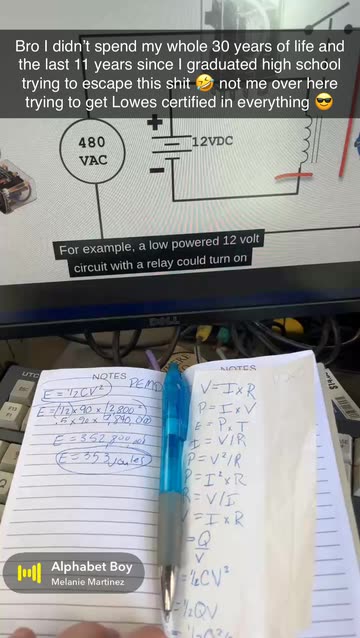 Bro I didn't spend my whole 30 years of life and
the last 11 years since I graduated high school
trying to escape this shit 🤣 not me over here
trying to get Lowes certified in everything 😎
480
VAC
+
12VDC
-
For example, a low powered 12 volt
circuit with a relay could turn on
DELL
UTC
NOTES
E = ½CV²
E = (½) x 90 x 2,800²
.5 x 90 x 7,840,000
E = 352,800
E = 353 joules
NOTES
V = I x R
P = I x V
E = P x T
I = V/R
P = V²/R
P = I² x R
R = V/I
V = I x R
= Q
V
= ½CV²
= ½QV
Alphabet Boy
Melanie Martinez